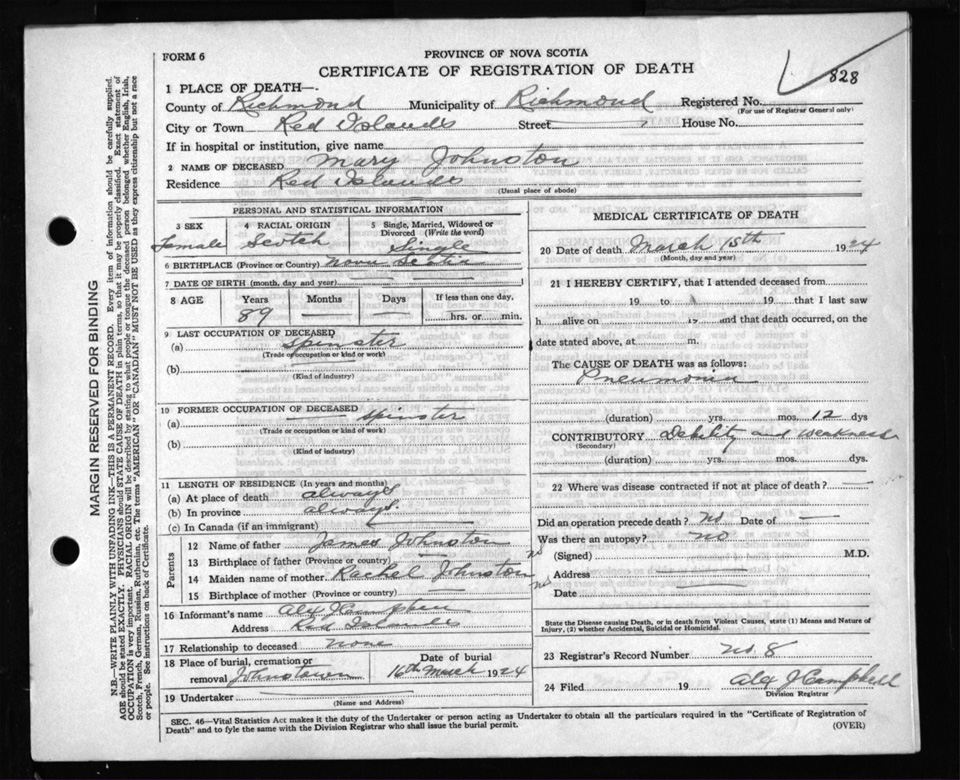 FORM 6
PROVINCE OF NOVA SCOTIA
CERTIFICATE OF REGISTRATION OF DEATH
828
1 PLACE OF DEATH—
County of Richmond Municipality of Richmond Registered No.
(For use of Registrar General only)
City or Town Red Islands Street House No.
If in hospital or institution, give name
2 NAME OF DECEASED Mary Johnston
Residence Red Islands
(Usual place of abode)
PERSONAL AND STATISTICAL INFORMATION
3 SEX 4 RACIAL ORIGIN 5 Single, Married, Widowed or Divorced (Write the word)
Female Scotch Single
6 BIRTHPLACE (Province or Country) Nova Scotia
7 DATE OF BIRTH (month, day and year)
8 AGE Years Months Days If less than one day,
89 — — hrs. or min.
9 LAST OCCUPATION OF DECEASED
(a) Spinster
(Trade or occupation or kind or work)
(b)
(Kind of industry)
10 FORMER OCCUPATION OF DECEASED
(a) Spinster
(Trade or occupation or kind or work)
(b)
(Kind of industry)
11 LENGTH OF RESIDENCE (In years and months)
(a) At place of death always
(b) In province always
(c) In Canada (if an immigrant)
Parents
12 Name of father James Johnston
13 Birthplace of father (Province or country) — ns
14 Maiden name of mother Rachel Johnston
15 Birthplace of mother (Province or country) — ns
16 Informant's name Alex J Campbell
Address Red Islands
17 Relationship to deceased none
18 Place of burial, cremation or removal Johnstown
Date of burial
16th March 1924
19 Undertaker
(Name and Address)
MEDICAL CERTIFICATE OF DEATH
20 Date of death March 15th 1924
(Month, day and year)
21 I HEREBY CERTIFY, that I attended deceased from
19 to 19 that I last saw
h alive on 19 and that death occurred, on
date stated above, at m.
The CAUSE OF DEATH was as follows:
Pneumonia
(duration) yrs. mos. 12 dys
CONTRIBUTORY Debility and weakness
(Secondary)
(duration) yrs. mos. dys.
22 Where was disease contracted if not at place of death? —
Did an operation precede death? no Date of —
Was there an autopsy? no
(Signed) M.D.
Address
Date
State the Disease causing Death, or in death from Violent Causes, state (1) Means and Nature of Injury, (2) whether Accidental, Suicidal or Homicidal.
23 Registrar's Record Number no. 8
24 Filed 19 Alex J Campbell
Division Registrar
SEC. 46—Vital Statistics Act makes it the duty of the Undertaker or person acting as Undertaker to obtain all the particulars required in the "Certificate of Registration of
Death" and to fyle the same with the Division Registrar who shall issue the burial permit. (OVER)
MARGIN RESERVED FOR BINDING
N.B.—WRITE PLAINLY WITH UNFADING INK—THIS IS A PERMANENT RECORD. Every item of information should be carefully supplied.
AGE should be stated EXACTLY. PHYSICIANS should STATE CAUSE OF DEATH in plain terms, so that it may be properly classified. Exact statement of
OCCUPATION is very important. RACIAL ORIGIN will be described by stating to what people or tongue the deceased person belonged whether English, Irish,
Scotch, French, German, Russian, Ruthenian, etc. The terms "AMERICAN" OR "CANADIAN" MUST NOT BE USED as they express citizenship but not a race
or people. See instructions on back of Certificate.